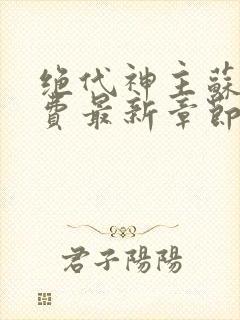 绝代神主蘇
費最新章節
君子陽陽